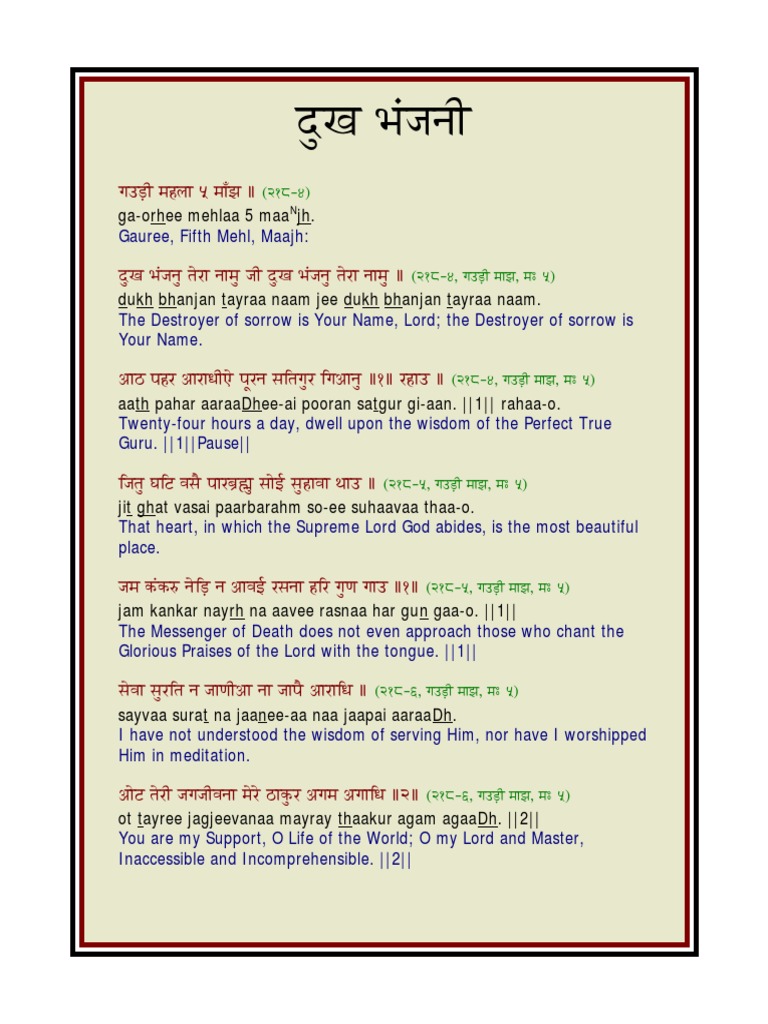 दुख भंजनी
गउड़ी महला ५ माँझ ॥ (२१८-४)
ga-orhee mehlaa 5 maaNjh.
Gauree, Fifth Mehl, Maajh:
दुख भंजनु तेरा नामु जी दुख भंजनु तेरा नामु ॥ (२१८-४, गउड़ी माझ, मः ५)
dukh bhanjan tayraa naam jee dukh bhanjan tayraa naam.
The Destroyer of sorrow is Your Name, Lord; the Destroyer of sorrow is
Your Name.
आठ पहर आराधीऐ पूरन सतिगुर गिआनु ॥१॥ रहाउ ॥ (२१८-४, गउड़ी माझ, मः ५)
aath pahar aaraaDhee-ai pooran satgur gi-aan. ||1|| rahaa-o.
Twenty-four hours a day, dwell upon the wisdom of the Perfect True
Guru. ||1||Pause||
जितु घटि वसै पारब्रह्मु सोई सुहावा थाउ ॥ (२१८-५, गउड़ी माझ, मः ५)
jit ghat vasai paarbarahm so-ee suhaavaa thaa-o.
That heart, in which the Supreme Lord God abides, is the most beautiful
place.
जम कंकरु नेड़ि न आवई रसना हरि गुण गाउ ॥१॥ (२१८-५, गउड़ी माझ, मः ५)
jam kankar nayrh na aavee rasnaa har gun gaa-o. ||1||
The Messenger of Death does not even approach those who chant the
Glorious Praises of the Lord with the tongue. ||1||
सेवा सुरति न जाणीआ ना जापै आराधि ॥ (२१८-६, गउड़ी माझ, मः ५)
sayvaa surat na jaanee-aa naa jaapai aaraaDh.
I have not understood the wisdom of serving Him, nor have I worshipped
Him in meditation.
ओट तेरी जगजीवना मेरे ठाकुर अगम अगाधि ॥२॥ (२१८-६, गउड़ी माझ, मः ५)
ot tayree jagjeevanaa mayray thaakur agam agaaDh. ||2||
You are my Support, O Life of the World; O my Lord and Master,
Inaccessible and Incomprehensible. ||2||